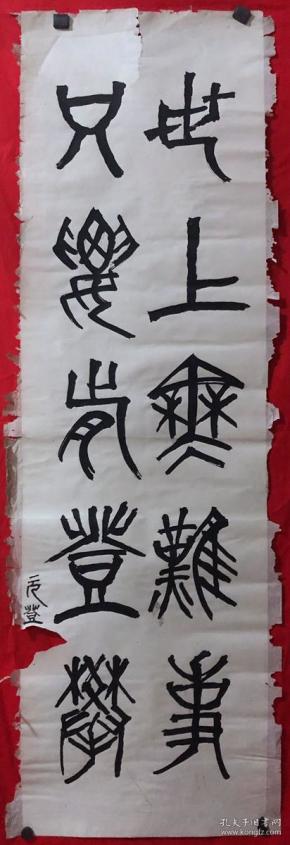 世上無難事
只要肯登攀
元登
孔夫子旧书网
www.kongfz.com